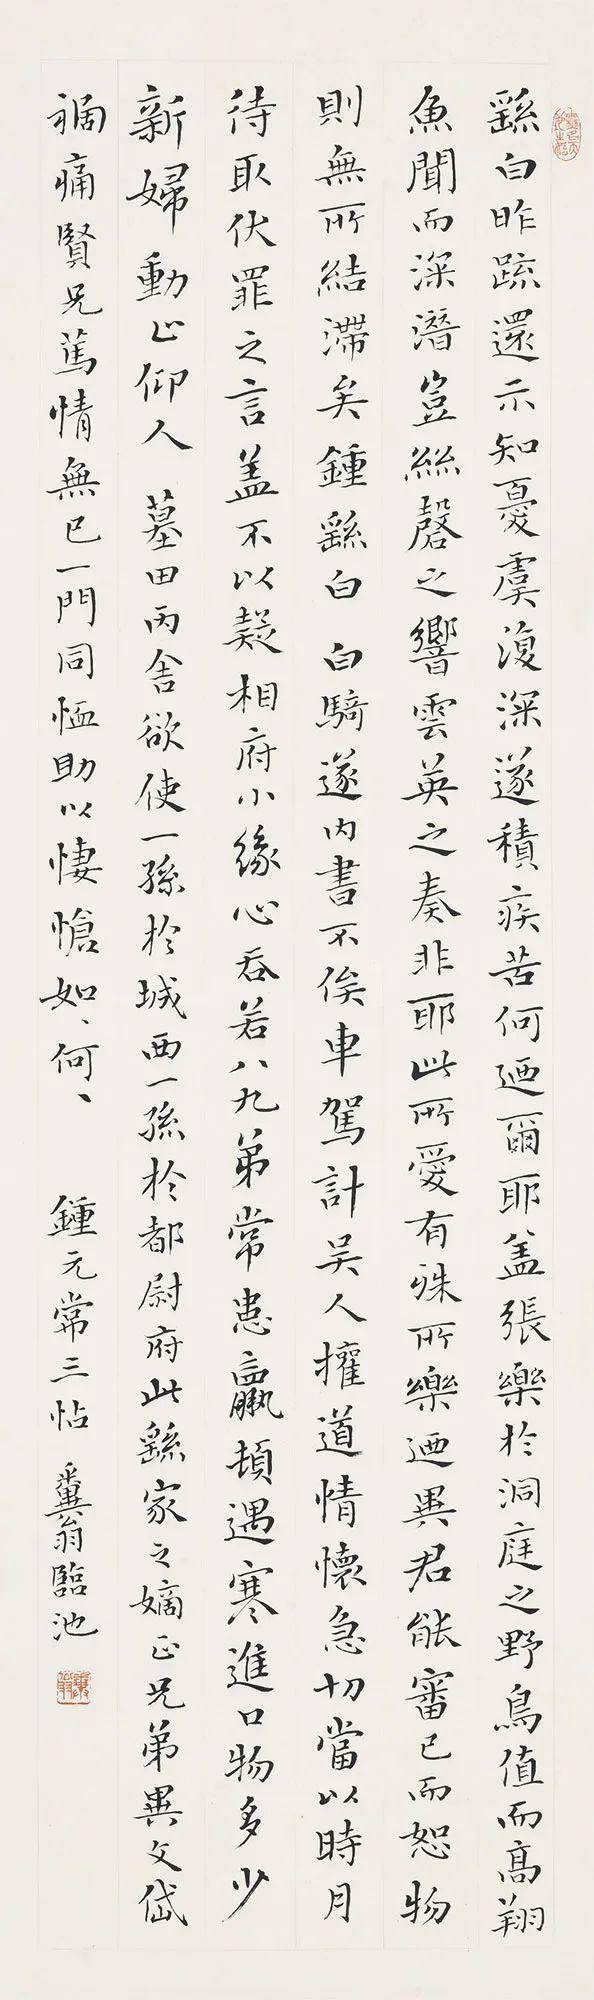 繇白昨疏還示知憂虞復深遂積疾苦何迺爾耶蓋張樂於洞庭之野鳥值而高翔
魚聞而深潛豈絲磬之響雲英之奏非耶此所愛有殊所樂迺異君能審己而恕物
則無所結滯矣鍾繇白 白騎遂內書不俟車駕計吴人權道情懷急切當以時月
待取伏罪之言蓋不以疑相府小緣心吞若八九弟常患羸頓遇寒進口物多少
新婦動止仰人 墓田丙舍欲使一孫於城西一孫於都尉府此繇家之嫡正兄弟異文岱
禍痛賢兄篤情無已一門同恤助以悽愴如〻何〻
鍾元常三帖 糞翁臨池